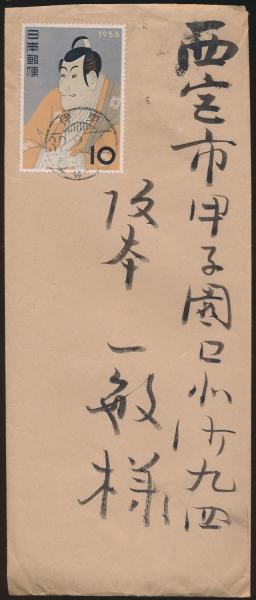 西宮市甲子園口北町九四
阪本一敏様
日本郵便
1956
10